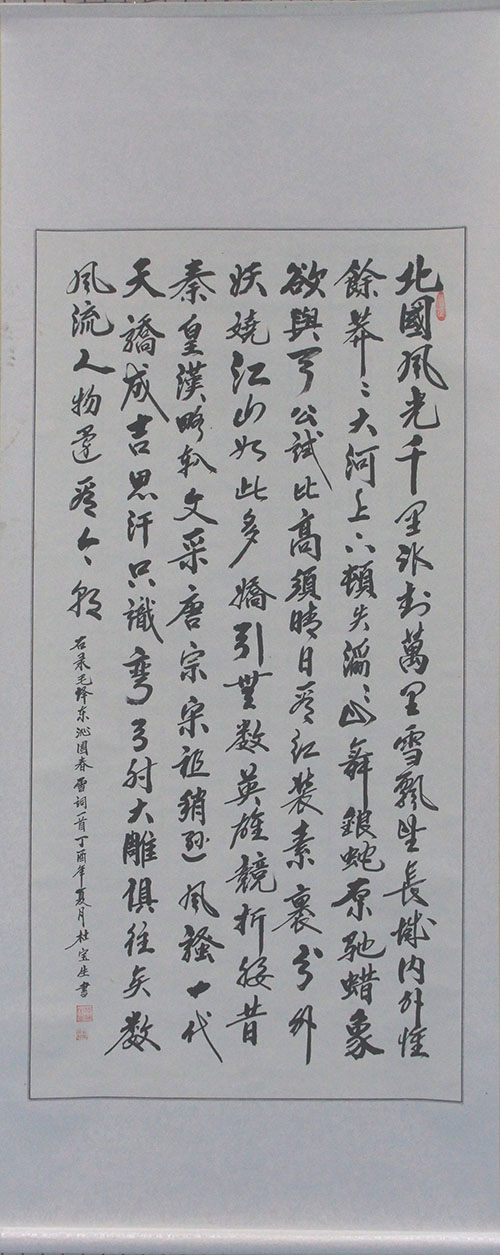 北國風光千里冰封萬里雪飄望長城内外惟
餘莽〻大河上下頓失滔〻山舞銀蛇原馳蜡象
欲與天公試比高須晴日看紅裝素裹分外
妖嬈江山如此多嬌引無数英雄競折腰昔
秦皇漢略输文采唐宗宋祖稍遜風騷一代
天驕成吉思汗只識彎弓射大雕俱往矣数
風流人物還看今朝
右录毛泽东沁园春雪词一首丁酉年夏月杜宝生書